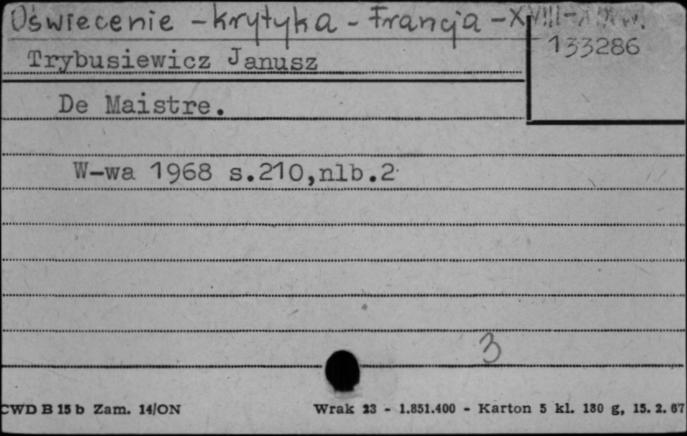 Oświecenie - krytyka - Francja - XVIII-XIX w.
133286
Trybusiewicz Janusz
De Maistre.
W-wa 1968 s.210,nlb.2
3
CWD B 15 b Zam. 14/ON Wrak 23 - 1.851.400 - Karton 5 kl. 180 g, 15. 2. 67